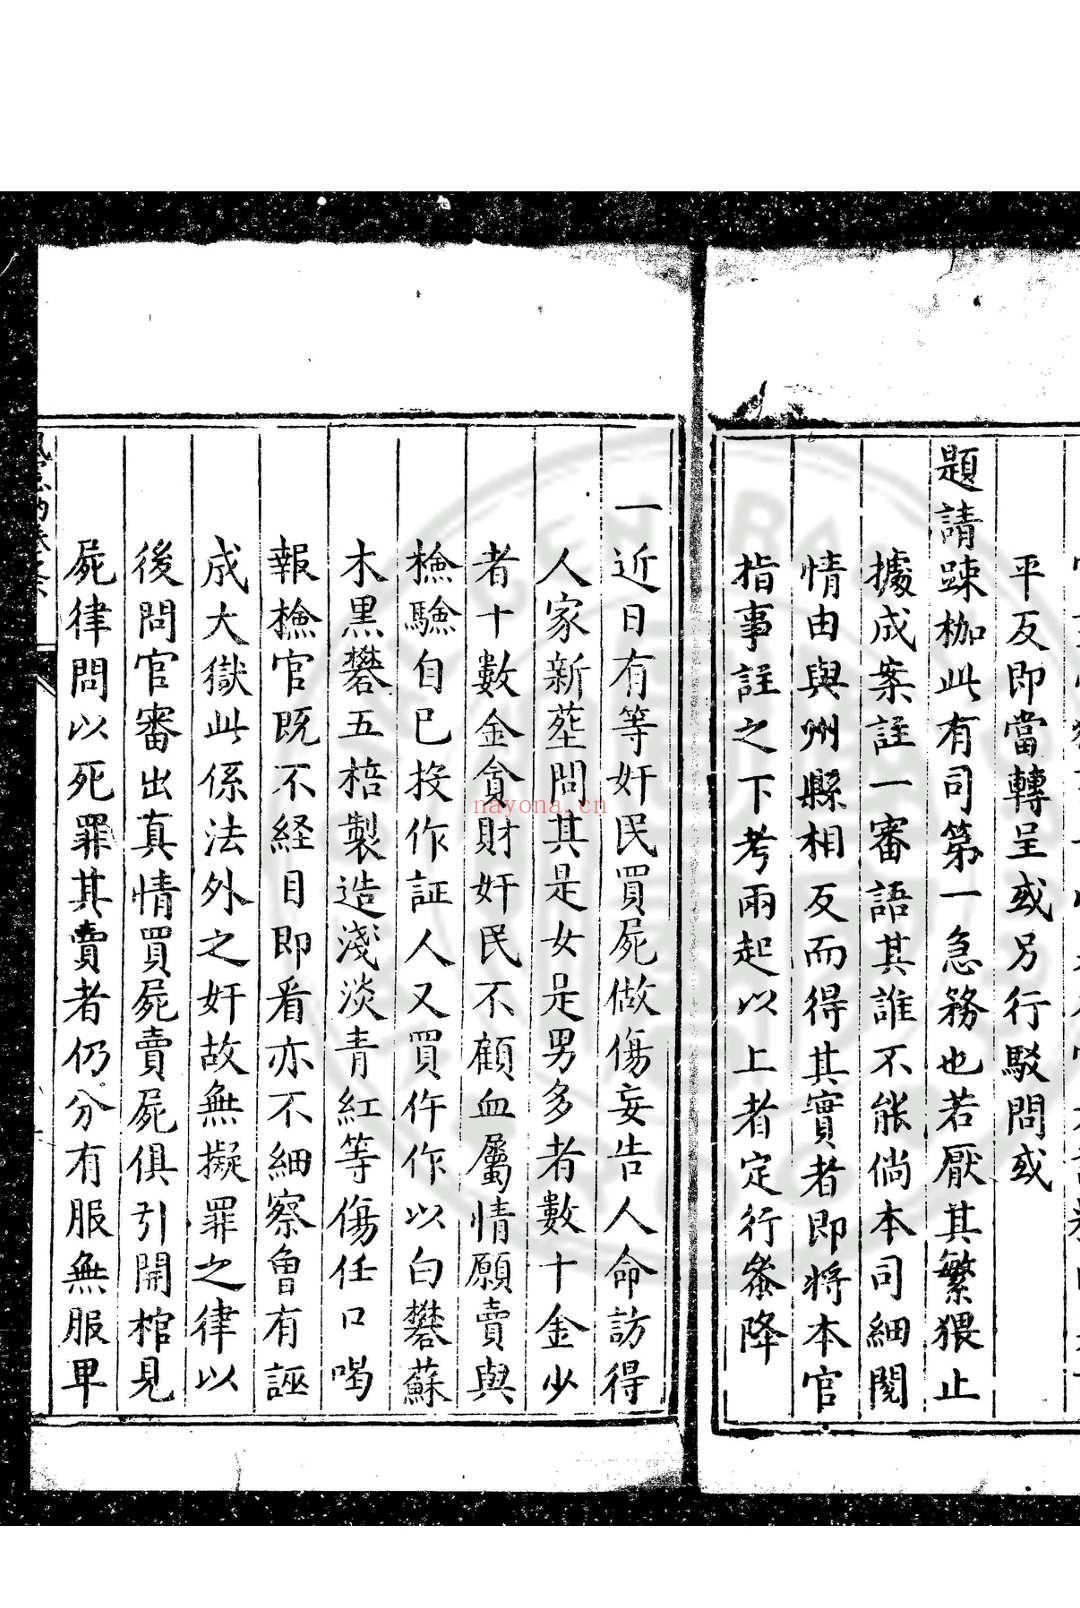 平反即當轉呈或另行駁問或
題請踈枷此有司第一急務也若厭其繁猥止
據成案註一審語其誰不能倘本司細閱
情由與州縣相反而得其實者即將本官
指事註之下考兩起以上者定行叅降
一近日有等奸民買屍做傷妄告人命訪得
人家新塟問其是女是男多者數十金少
者十數金貪財奸民不顧血屬情願賣與
檢驗自已投作証人又買仵作以白礬蘇
木黑礬五棓製造淺淡青紅等傷任口喝
報檢官既不経目即看亦不細察魯有誣
成大獄此係法外之奸故無擬罪之律以
後問官審出真情買屍賣屍俱引開棺見
屍律問以死罪其賣者仍分有服無服卑
nayona.cn